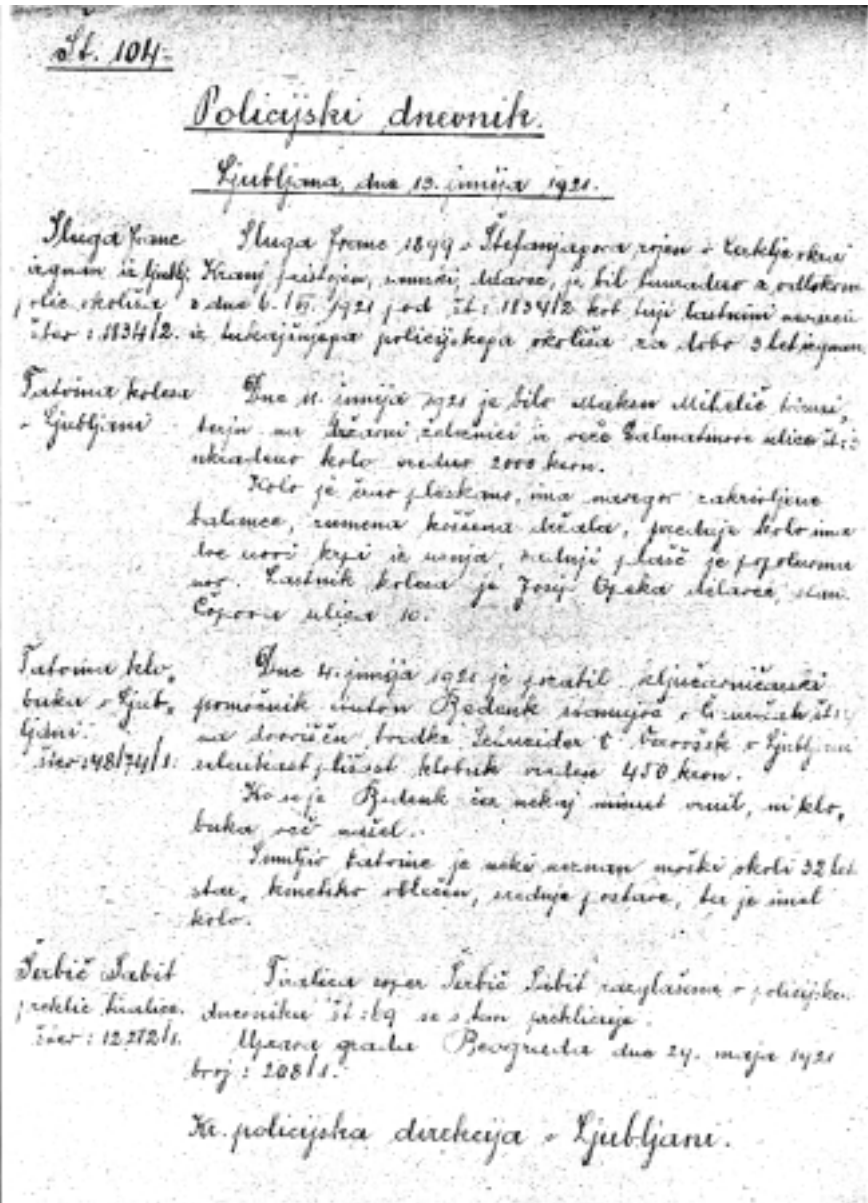 Št. 104.
Policijski dnevnik.
Ljubljana, dne 13. junija 1921.
Sluga Franc
izgnan iz ljublj.
polic. okoliša
štev: 1834/2.
Sluga Franc 1899 v Štefanjagora rojen v okraj
Kranj pristojen, samski, delavec, je bil z odlokom
z dne 6./VI. 1921 pod št: 1834/2 kot tuji lastnini nevaren
iz tukajšnjega policijskega okoliša za dobo 3 let izgnan.
Tatvina kolesa
v Ljubljani
Dne 11. junija 1921 je bilo Maksu Mihelič
na državni železnici iz veže Dalmatinove ulice št:
ukradeno kolo vredno 2000 kron.
Kolo je črno pleskano, ima navzgor zakrivljene
balance, rumena koščena držala, prednje kolo ima
dve novi krpi iz usnja, zadnji plašč je popolnoma
nov. Lastnik kolesa je Josip Opeka delavec, stan.
Čopova ulica 10.
Tatvina klo„
buka v Ljub„
ljani.
štev: 48/74/1.
Dne 4. junija 1921 je pozabil ključavničarski
pomočnik Anton Bedenk stanujoč v
na dvorišču tvrdke Schneider & Verovšek v Ljubljani
plišast klobuk vreden 450 kron.
Ko se je Bedenk čez nekaj minut vrnil, ni klo„
buka več našel.
Sumljiv tatvine je neki neznan moški okoli 32 let
star, kmetsko oblečen, srednje postave, ter je imel
kolo.
Šerbič Sabit
preklic tiralice.
štev: 12272/1.
Tiralica zoper Šerbič Sabit razglašena v policijskem
dnevniku št: 69 se s tem preklicuje.
Uprava grada Beograda dne 24. maja 1921
broj: 208/1.
Kr. policijska direkcija v Ljubljani.